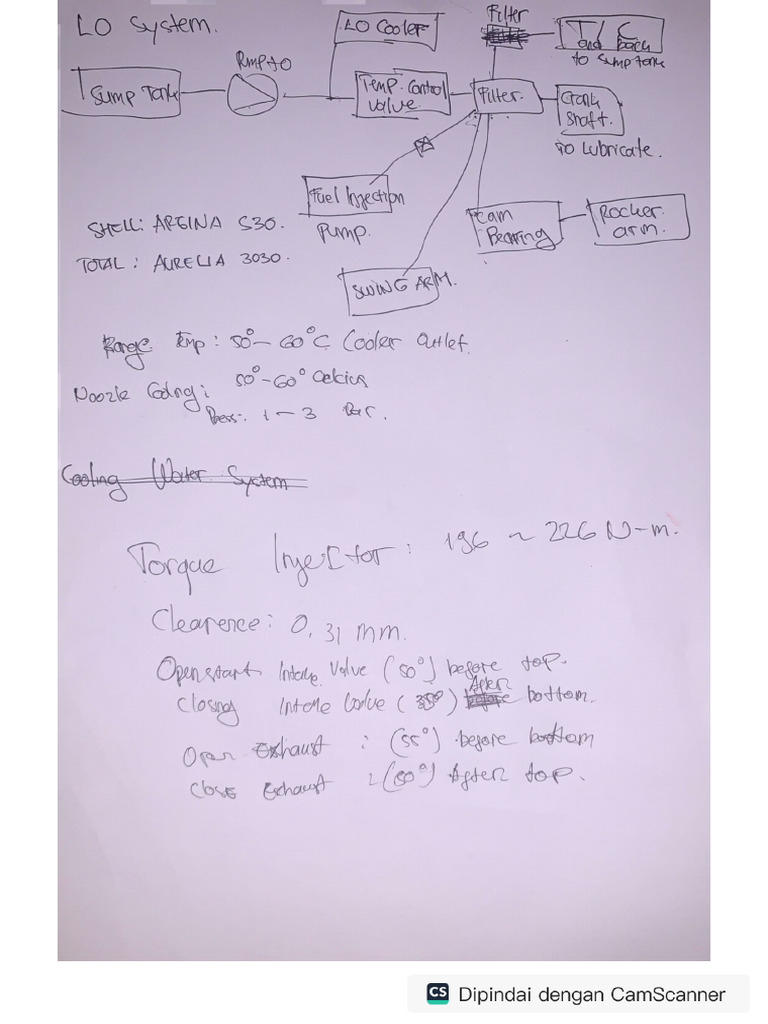 LO System.
LO Cooler
Filter
T/C
and back
to sump tank
Sump Tank
Pump to
Temp. Control
valve
Filter.
Crank
shaft.
to Lubricate.
Fuel Injection
Pump.
SHELL: ARGINA S30.
TOTAL : AURELIA 3030.
Cam
Bearing
Rocker
arm.
SWING ARM.
Range Temp : 50°- 60°C Cooler Outlet.
Noozle Cooling : 50°-60° Celcius
Press: 1 - 3 Bar.
Cooling Water System
Torque Injector : 196 ~ 226 N-m.
Clearence : 0,31 mm.
Open start Intake Valve (50°) before top.
Closing Intake Valve (35°) After bottom.
Open Exhaust : (55°) before bottom
Close Exhaust : (60°) After top.
CS Dipindai dengan CamScanner